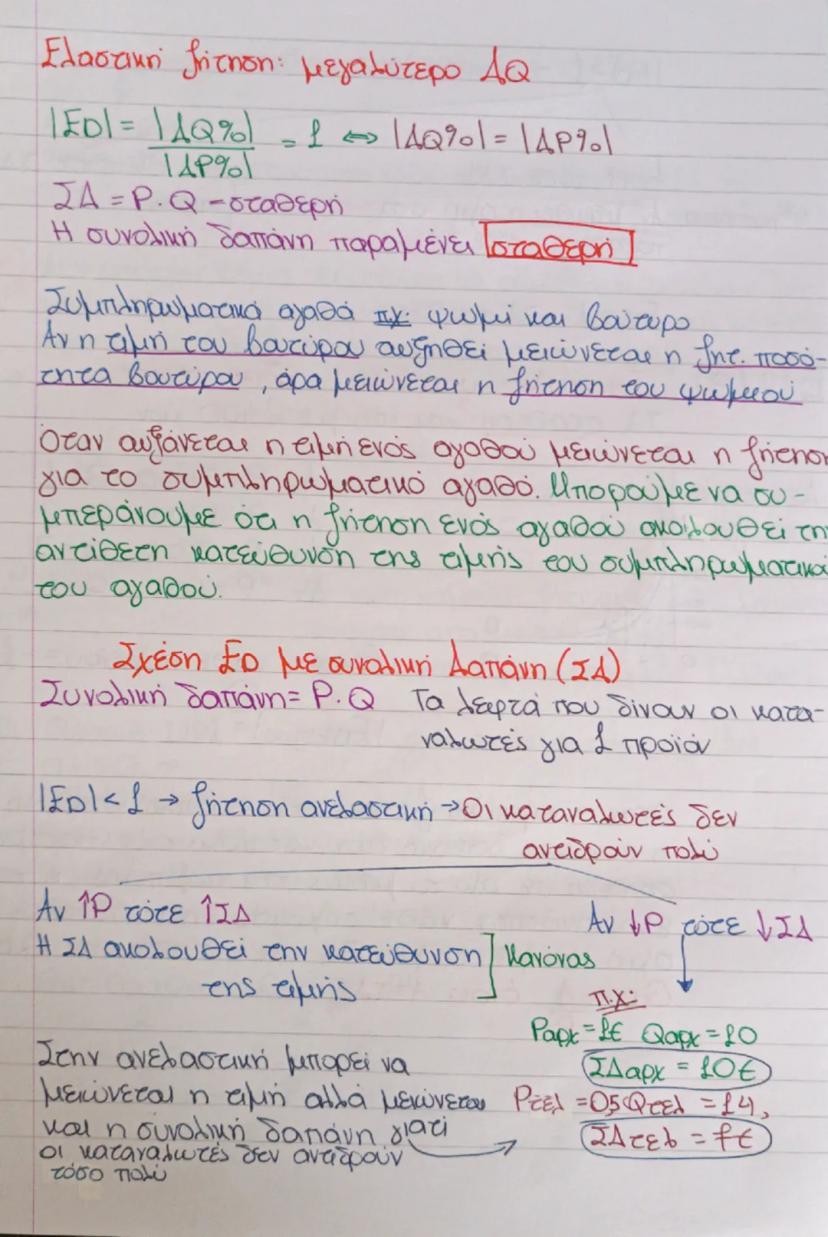 Ελαστική ζήτηση: μεγαλύτερο ΔQ
|ED| = |ΔQ%| / |ΔP%| = 1 ⇔ |ΔQ%| = |ΔP%|
ΣΔ = P.Q - σταθερή
Η συνολική δαπάνη παραμένει σταθερή
Συμπληρωματικά αγαθά πχ: ψωμί και βούτυρο
Αν η τιμή του βουτύρου αυξηθεί μειώνεται η ζητ. ποσό-
τητα βουτύρου, άρα μειώνεται η ζήτηση του ψωμιού
Όταν αυξάνεται η τιμή ενός αγαθού μειώνεται η ζήτηση
για το συμπληρωματικό αγαθό. Μπορούμε να συ-
μπεράνουμε ότι η ζήτηση ενός αγαθού ακολουθεί την
αντίθετη κατεύθυνση της τιμής του συμπληρωματικού
του αγαθού.
Σχέση ED με συνολική Δαπάνη (ΣΔ)
Συνολική δαπάνη = P.Q Τα λεφτά που δίνουν οι κατα-
ναλωτές για 1 προϊόν
|ED| < 1 → ζήτηση ανελαστική → Οι καταναλωτές δεν
αντιδρούν πολύ
Αν ↑P τότε ↑ΣΔ
Αν ↓P τότε ↓ΣΔ
Η ΣΔ ακολουθεί την κατεύθυνση
της τιμής
Κανόνας
π.χ:
Pαρχ = 1€ Qαρχ = 10
ΣΔαρχ = 10€
Pτελ = 05 Qτελ = 14,
ΣΔτελ = 7€
Στην ανελαστική μπορεί να
μειώνεται η τιμή αλλά μειώνεται
και η συνολική δαπάνη γιατί
οι καταναλωτές δεν αντιδρούν
τόσο πολύ